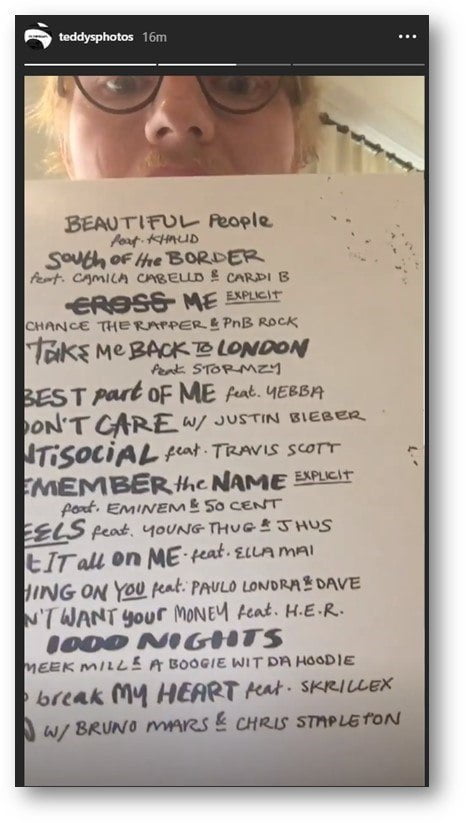 teddysphotos 16m
BEAUTIFUL People
feat. KHALID
South OF the BORDER
feat. CAMILA CABELLO & CARDI B
CROSS ME EXPLICIT
CHANCE THE RAPPER & PnB ROCK
TAKE Me BACK TO LONDON
feat. STORMZY
BEST part OF ME feat. YEBBA
DON'T CARE w/ JUSTIN BIEBER
NTiSOCIAL feat. TRAVIS SCOTT
EMEMBER the NAME EXPLICIT
feat. EMINEM & 50 CENT
EELS feat. YOUNG THUG & J HUS
t IT all on ME feat. ELLA MAI
HING ON YOU feat. PAULO LONDRA & DAVE
N'T WANT your MONEY feat. H.E.R.
1000 NIGHTS
MEEK MILL & A BOOGIE WIT DA HOODIE
break MY HEART feat. SKRILLEX
w/ BRUNO MARS & CHRIS STAPLETON